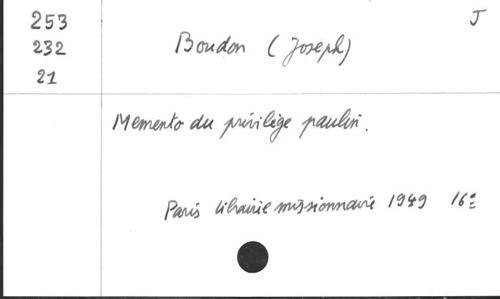 253 J
232 Boudon (Joseph)
21
Memento du privilège paulin.
Paris librairie missionnaire 1949 16º